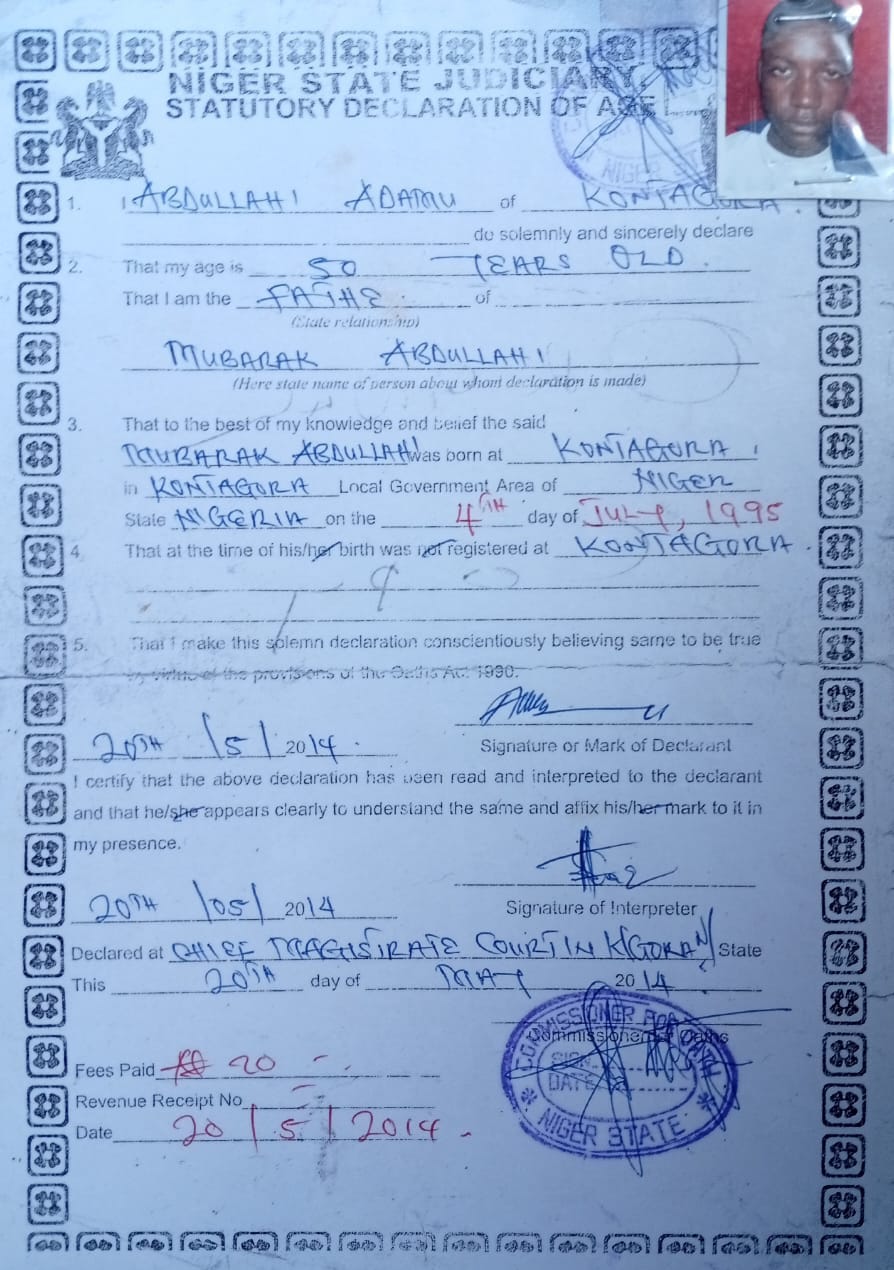 NIGER STATE JUDICIARY
STATUTORY DECLARATION OF AGE
NIGER STATE
1. I ABDULLAHI ADAMU of KONTAGORA.
do solemnly and sincerely declare
2. That my age is 50 YEARS OLD.
That I am the FATHE of
(State relationship)
MUBARAK ABDULLAHI
(Here state name of person about whom declaration is made)
3. That to the best of my knowledge and belief the said
MUBARAK ABDULLAHI was born at KONTAGORA,
in KONTAGORA Local Government Area of NIGER
State NIGERIA on the 4TH day of JULY, 1995
4 That at the time of his/her birth was not registered at KONTAGORA.
5. That I make this solemn declaration conscientiously believing same to be true
by virtue of the provisions of the Oaths Act 1990.
20TH /5/ 2014.
Signature or Mark of Declarant
I certify that the above declaration has been read and interpreted to the declarant
and that he/she appears clearly to understand the same and affix his/her mark to it in
my presence.
20TH /05/ 2014
Signature of Interpreter
Declared at CHIEF MAGISTRATE COURT IN K/GORA N/ State
This 20TH day of MAY 2014.
Commissioner Oaths
COMMISSIONER FOR OATH
SIGN
DATE
NIGER STATE
Fees Paid ₦ 20 -
Revenue Receipt No
Date 20/5/2014.